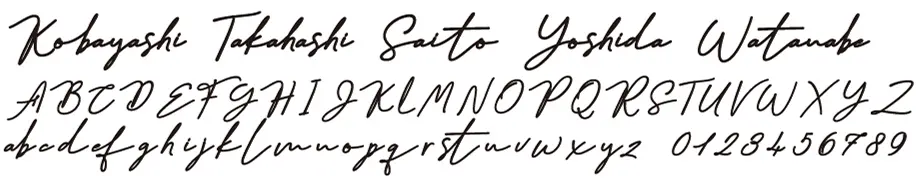 Kobayashi Takahashi Saito Yoshida Watanabe
A B C D E F G H I J K L M N O P Q R S T U V W X Y Z
a b c d e f g h i j k l m n o p q r s t u v w x y z 0 1 2 3 4 5 6 7 8 9